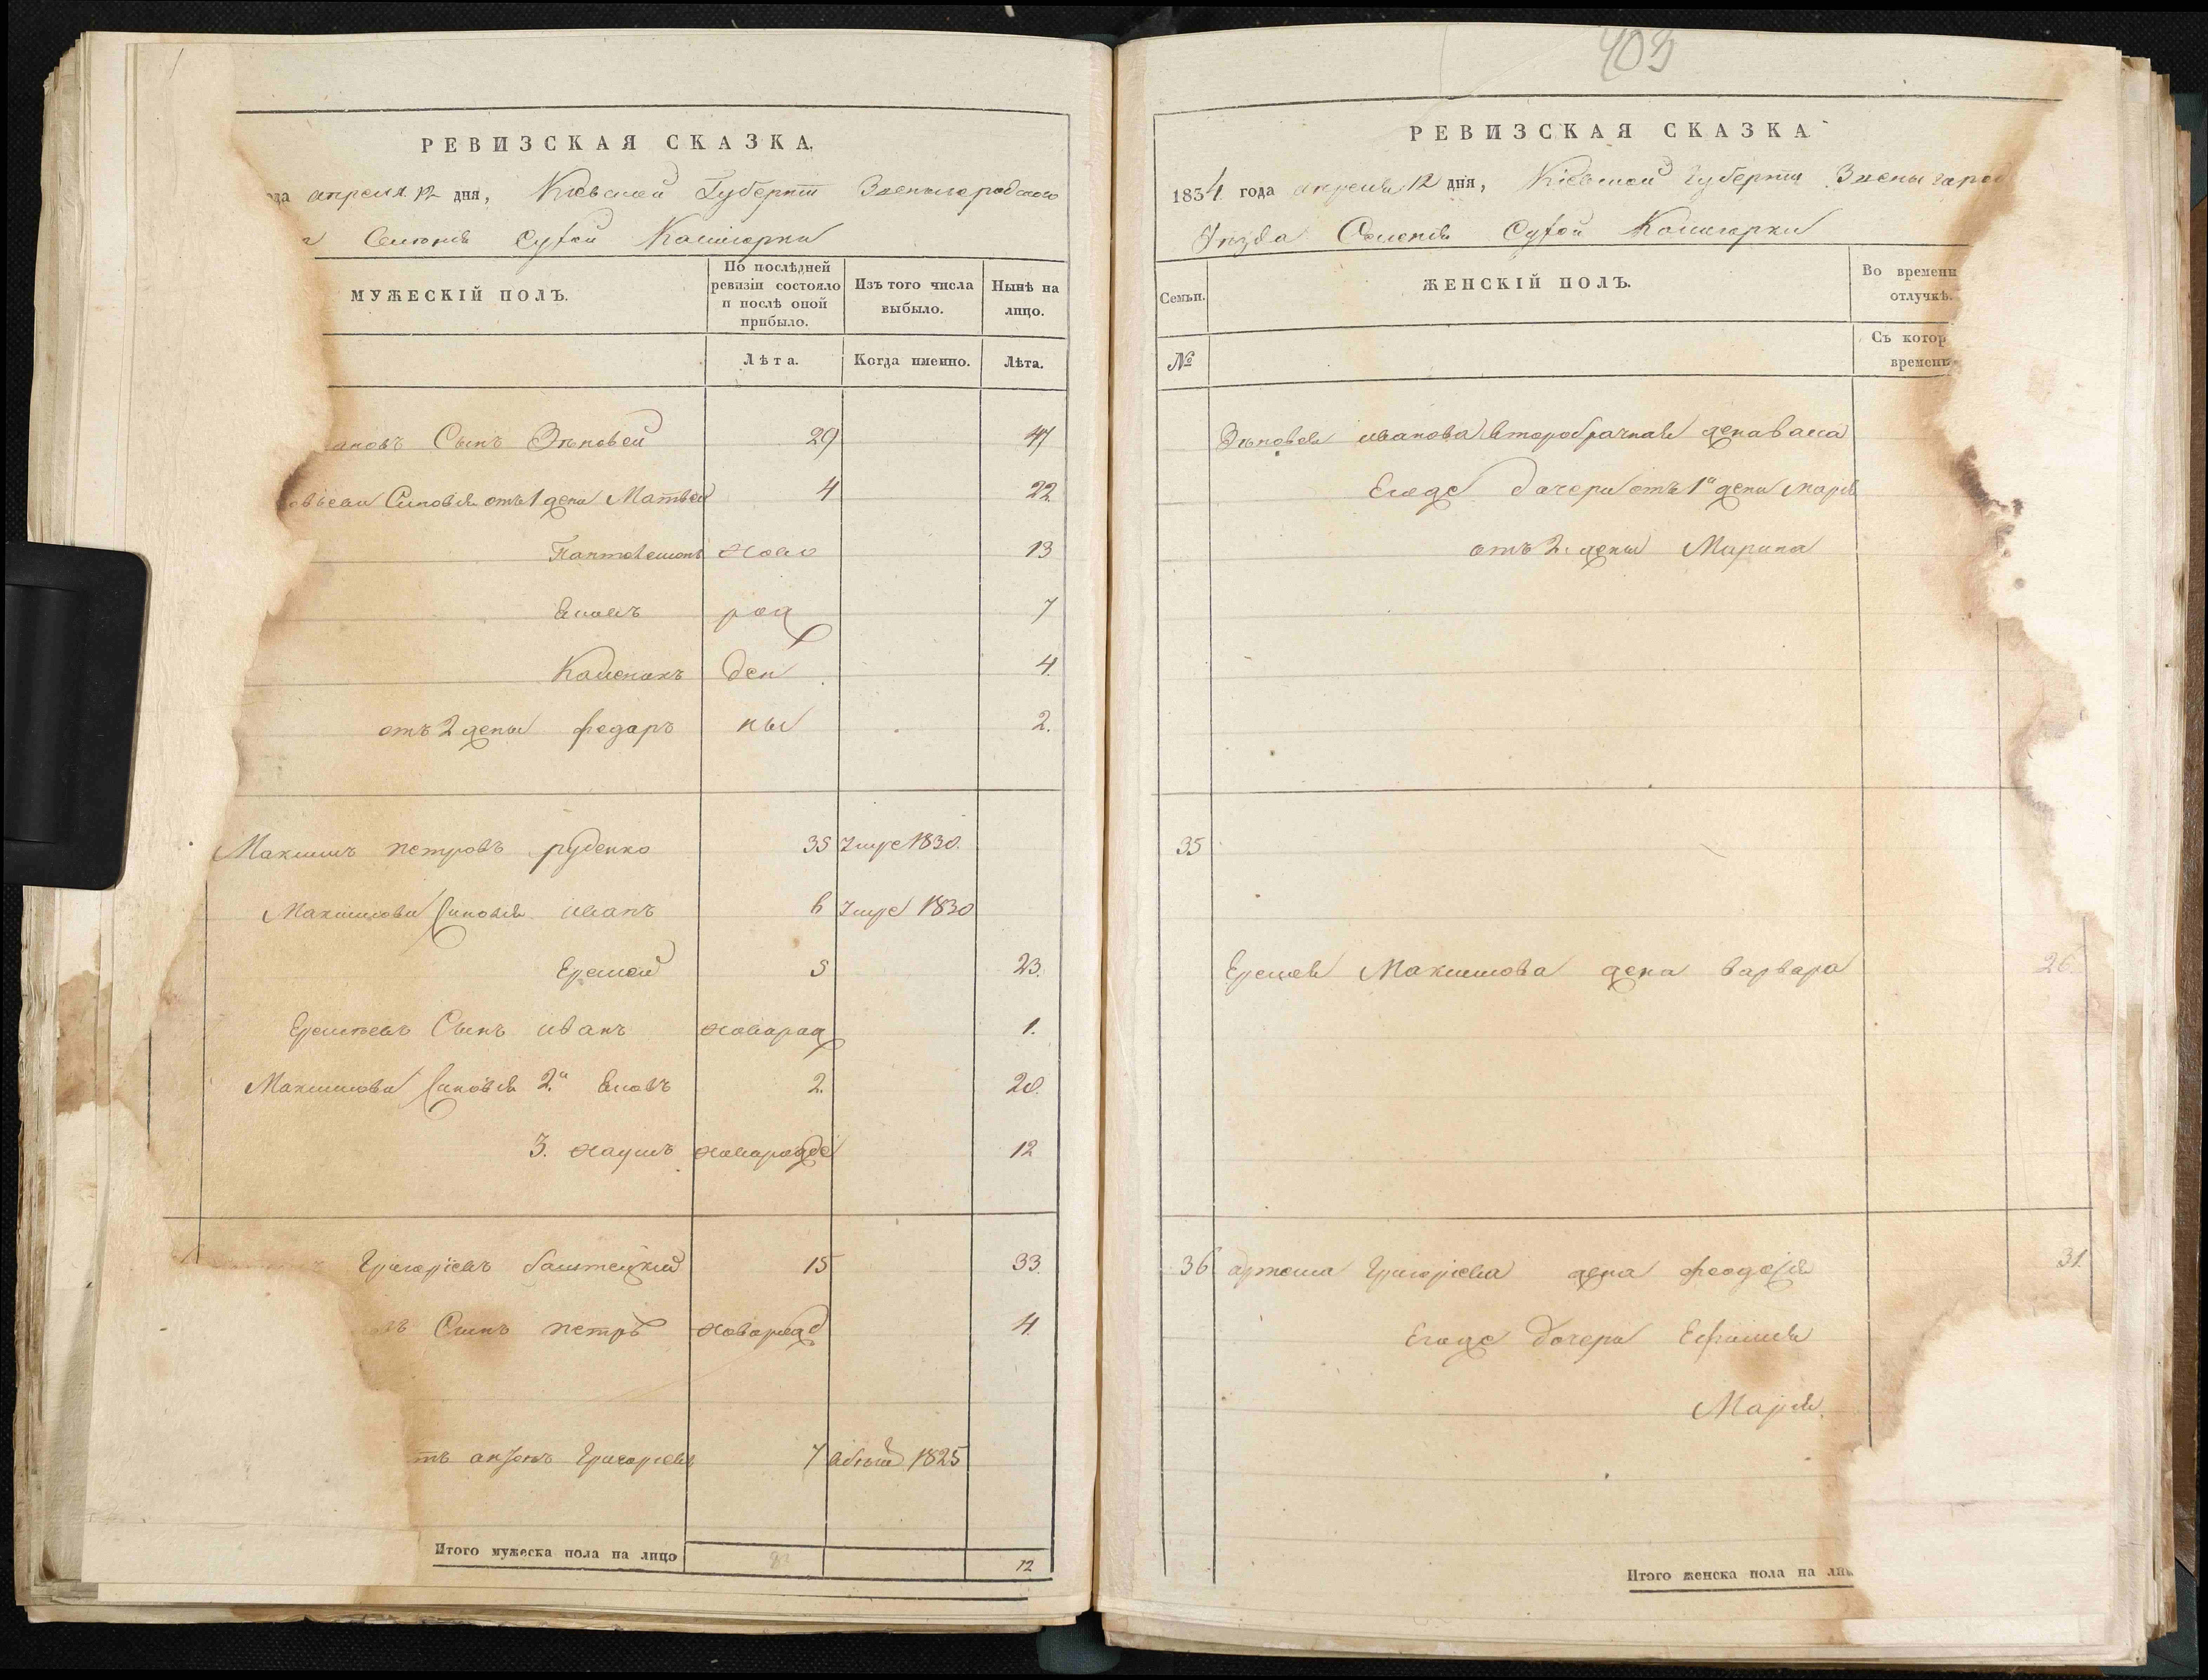 РЕВИЗСКАЯ СКАЗКА.
апреля 12 дня, Кіевской Губерніи Звенигородского
Селенія Сухой Калигорки
МУЖЕСКІЙ ПОЛЪ.
По послѣдней ревизіи состояло и послѣ оной прибыло.
Изъ того числа выбыло.
Нынѣ на лицо.
Лѣта.
Когда именно.
Лѣта.
ановъ Сынъ Зѣновей 29 47
Синовья отъ 1 жены Матвей 4 22
Пантелемонъ ново 13
рож 7
ден 4
отъ 2 жены федаръ ны 2.
Максимъ петровъ руденко 35 умре 1830.
Максимови Синовья иванъ 6 умре 1830
Еремей 5 23.
Еремѣевъ Сынъ иванъ новарож 1.
Максимови Синовья 2.й Яковъ 2. 20.
3. наумъ новарожде 12
Григоріевъ 15 33
въ Сынъ петръ новарожд 4
тъ Григорьевъ 7 1825
Итого мужеска пола на лицо 12
403
РЕВИЗСКАЯ СКАЗКА
1834 года апреля 12 дня, Кіевской Губерніи Звенигород
Уѣзда Селенія Сухой Калигорки
Семьи.
ЖЕНСКІЙ ПОЛЪ.
Во времени отлучкѣ.
№
Съ котор времени
Зѣновея иванова второбрачная жена
Егоже дочери отъ 1й жены марія
отъ 2. жены Марина
35
Еремея Максимова жена варвара 26.
36 артема Григоріева жена феодосія 31.
Егоже дочери Ефимія
Марія.
Итого женска пола на ли